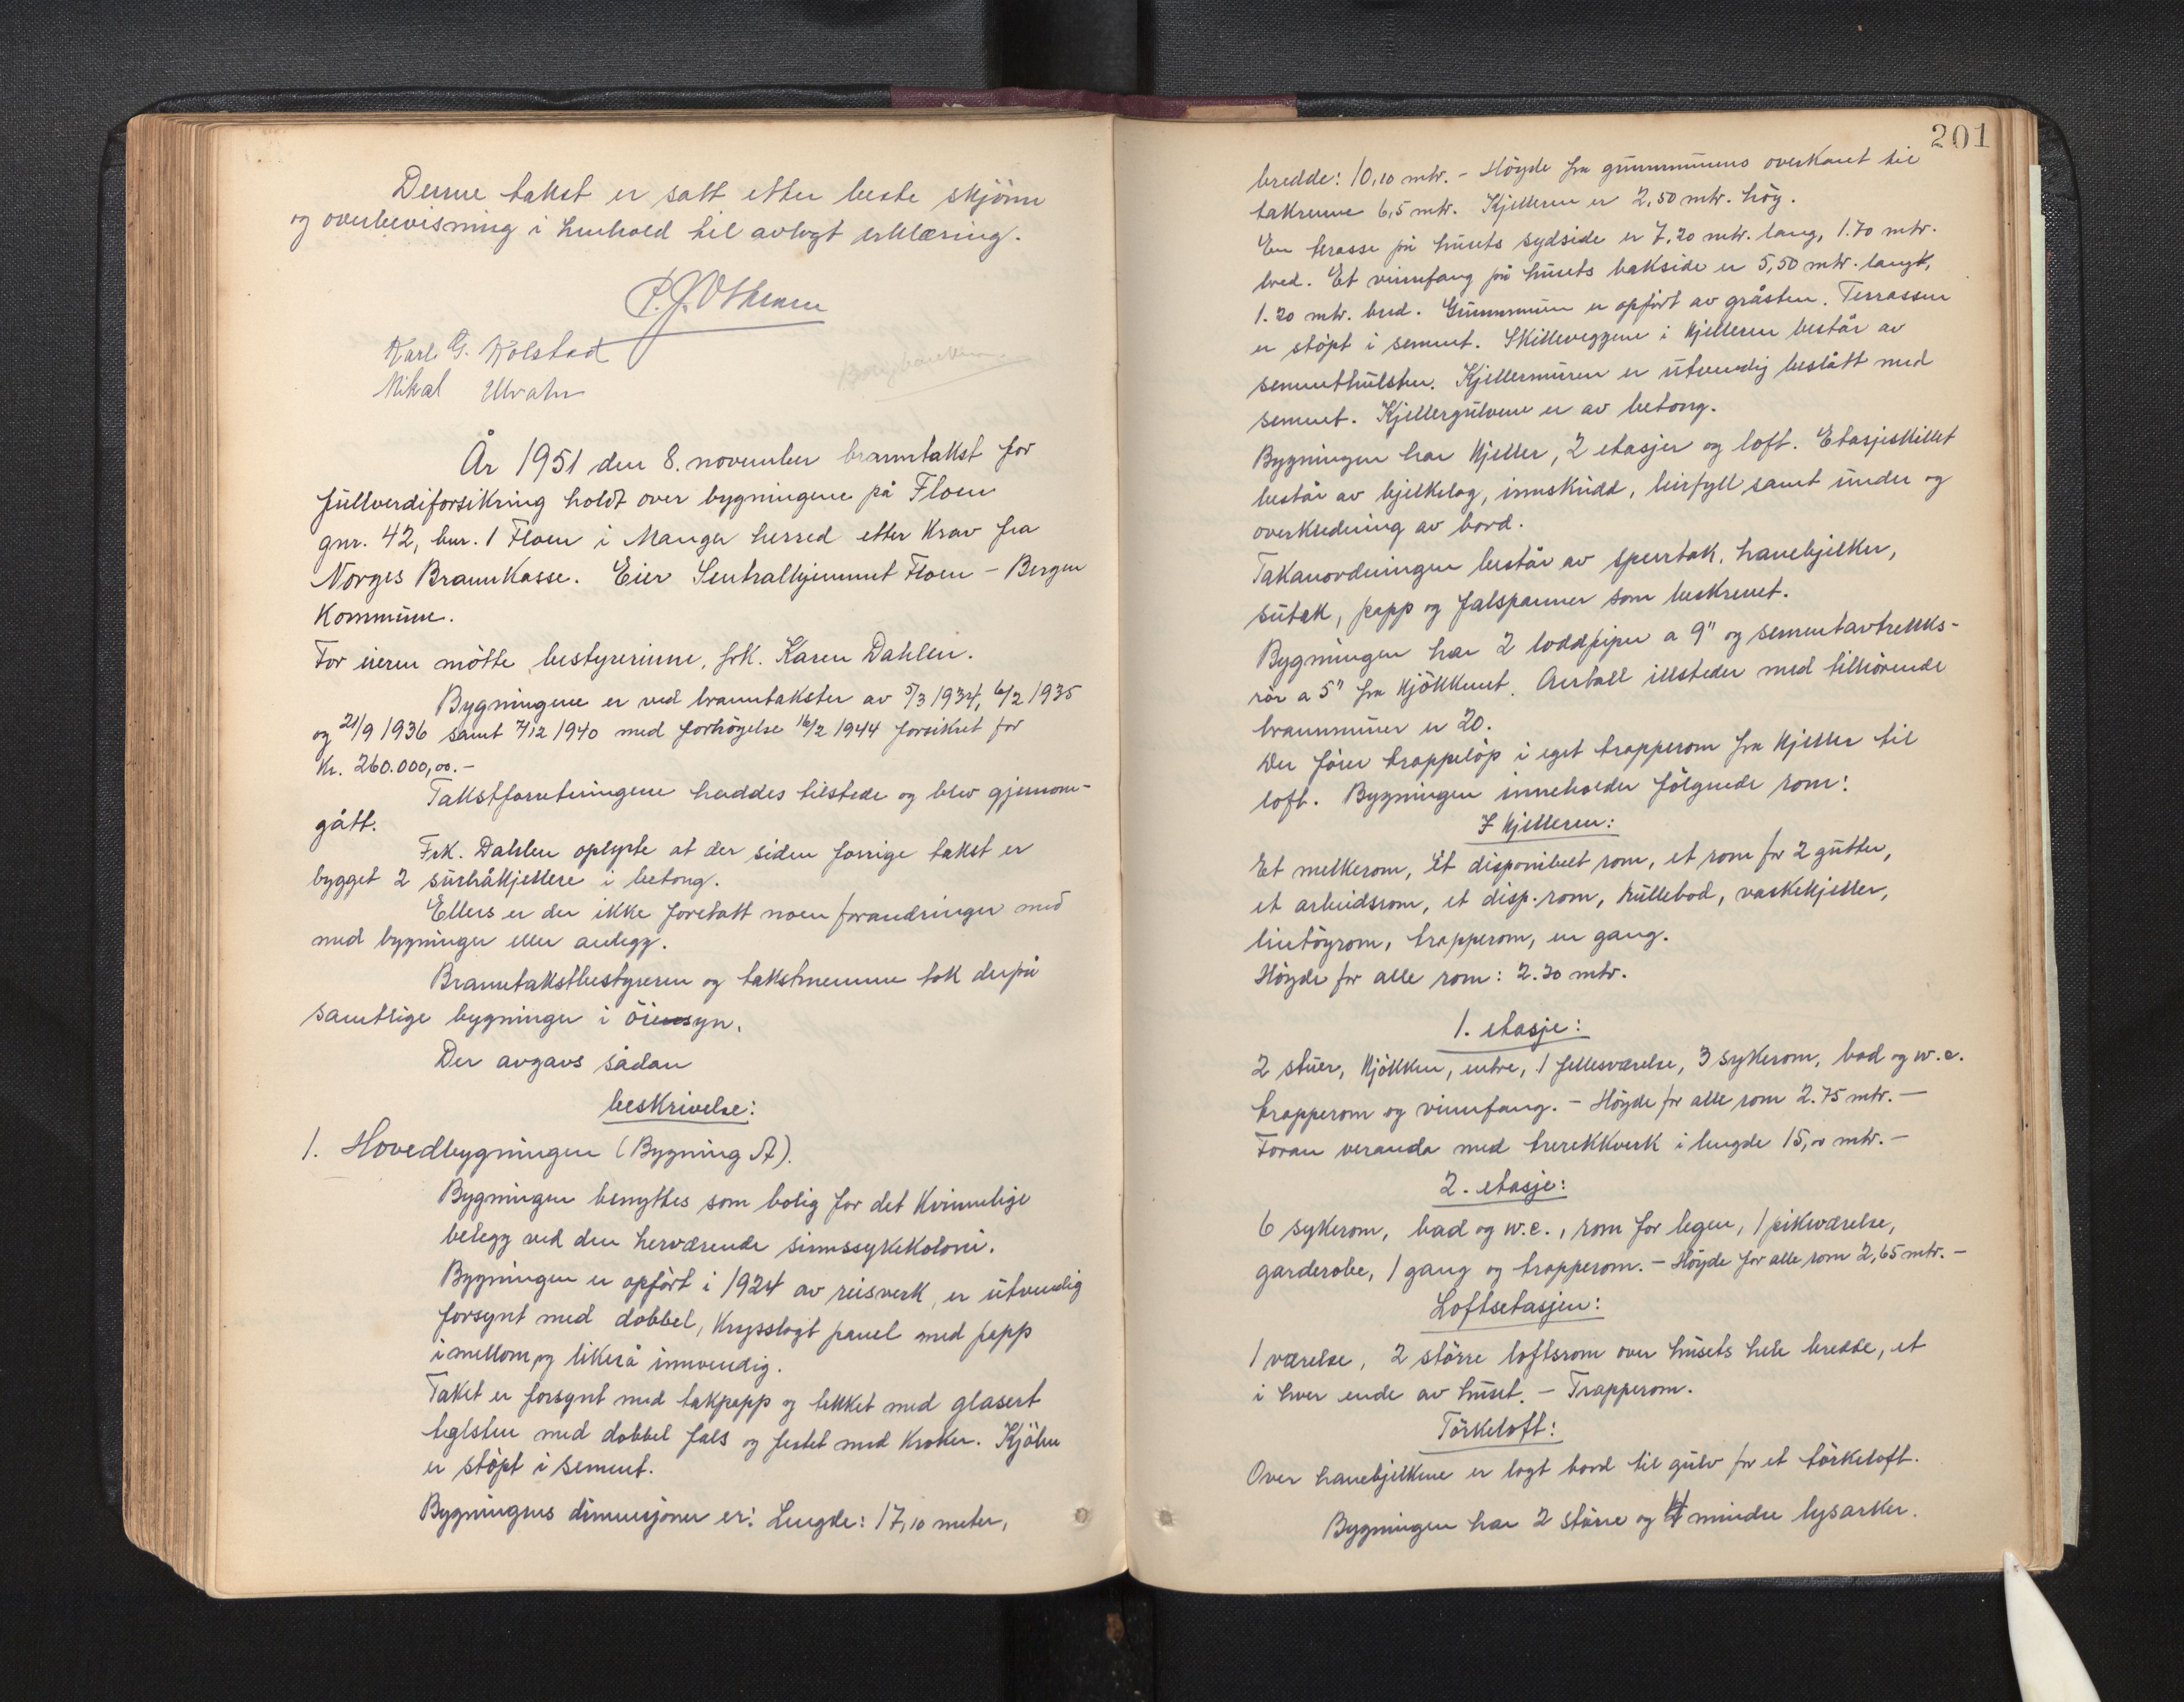 Denne takst er satt etter beste skjönn
og overbevisning i henhold til avlagt erklæring.
Karl G. Kolstad
Mikal Ulvatn
År 1951 den 8. november branntakst for
fullverdiforsikring holdt over bygningene på Floen
gnr. 42, bnr. 1 Floen i Manger herred etter krav fra
Norges Brannkasse. Eier Sentralhjemmet Floen - Bergen
kommune.
For eieren mötte bestyrerinne, frk. Karen Dahlen.
Bygningene er ved branntakster av 5/3 1934, 6/2 1935
og 21/9 1936 samt 7/12 1940 med forhögelse 16/2 1944 forsikret for
Kr. 260.000,00.-
Takstforretningene haddes tilstede og blev gjennom-
gått.
Frk. Dahlen oplyste at der siden forrige takst er
bygget 2 surhåkjellere i betong.
Ellers er der ikke foretatt noen forandringer med
med bygninger eller anlegg.
Branntakstbestyreren og takstmennene tok derpå
samtlige bygninger i öiensyn.
Der avgavs sådan
beskrivelse:
1. Hovedbygningen (Bygning A).
Bygningen benyttes som bolig for det kvinnelige
belegg ved den herværende sinnssykekoloni.
Bygningen er opfört i 1924 av reisverk, er utvendig
forsynt med dobbel, krysslagt panel med papp
imellom, og likeså innvendig.
Taket er forsynt med takpapp og tekket med glasert
teglsten med dobbel fals og festet med kroker. Kjölen
er stöpt i sement.
Bygningens dimensjoner er: Lengde: 17,10 meter,
201
bredde: 10,10 mtr. - Höyde fra grunnmurens overkant til
takrenne 6,5 mtr. Kjelleren er 2,50 mtr. hög.
En terasse på husets sydside er 7,20 mtr. lang, 1.70 mtr.
bred. Et vinnfang på husets bakside er 5,50 mtr. langt,
1.20 mtr. bred. Grunnmuren er opfört av gråsten. Terrassen
er stöpt i sement. Skilleveggene i kjelleren består av
sementhulsten. Kjellermuren er utvendig beslått med
sement. Kjellergulvene er av betong.
Bygningen har kjeller, 2 etasjer og loft. Etasjeskillet
består av bjelkelag, innskudd, leirfyll samt under og
overkledning av bord.
Takanordningen består av sperrtak, hanebjelker,
sutak, papp og falspanner som beskrevet.
Bygningen har 2 loddpiper a 9" og sementavtrekks-
rör a 5" fra kjökkenet. Antall illsteder med tilhörende
brannmurer er 20.
Der förer trappelöp i eget trapperom fra kjeller til
loft. Bygningen inneholder fölgende rom:
I kjelleren:
Et melkerom, et disponibelt rom, et rom for 2 gutter,
et arbeidsrom, et disp. rom, rullebod, vaskekjeller,
lintöyrom, trapperom, en gang.
Höyde for alle rom: 2.30 mtr.
1. etasje:
2 stuer, kjökken, entre, 1 fellesværelse, 3 sykerom, bad og w.c.
trapperom og vinnfang. - Höyde for alle rom 2.75 mtr. -
Foran veranda med trerekkverk i lengde 15,00 mtr. -
2. etasje:
6 sykerom, bad og w.c., rom for legen, 1 pikeværelse,
garderobe, 1 gang og trapperom. - Höyde for alle rom 2,65 mtr. -
Loftsetasjen:
1 værelse, 2 större loftsrom over husets hele bredde, et
i hver ende av huset. - Trapperom.
Törkeloft:
Over hanebjelkene er lagt bord til gulv for et törkeloft.
Bygningen har 2 större og 4 mindre lysarker.